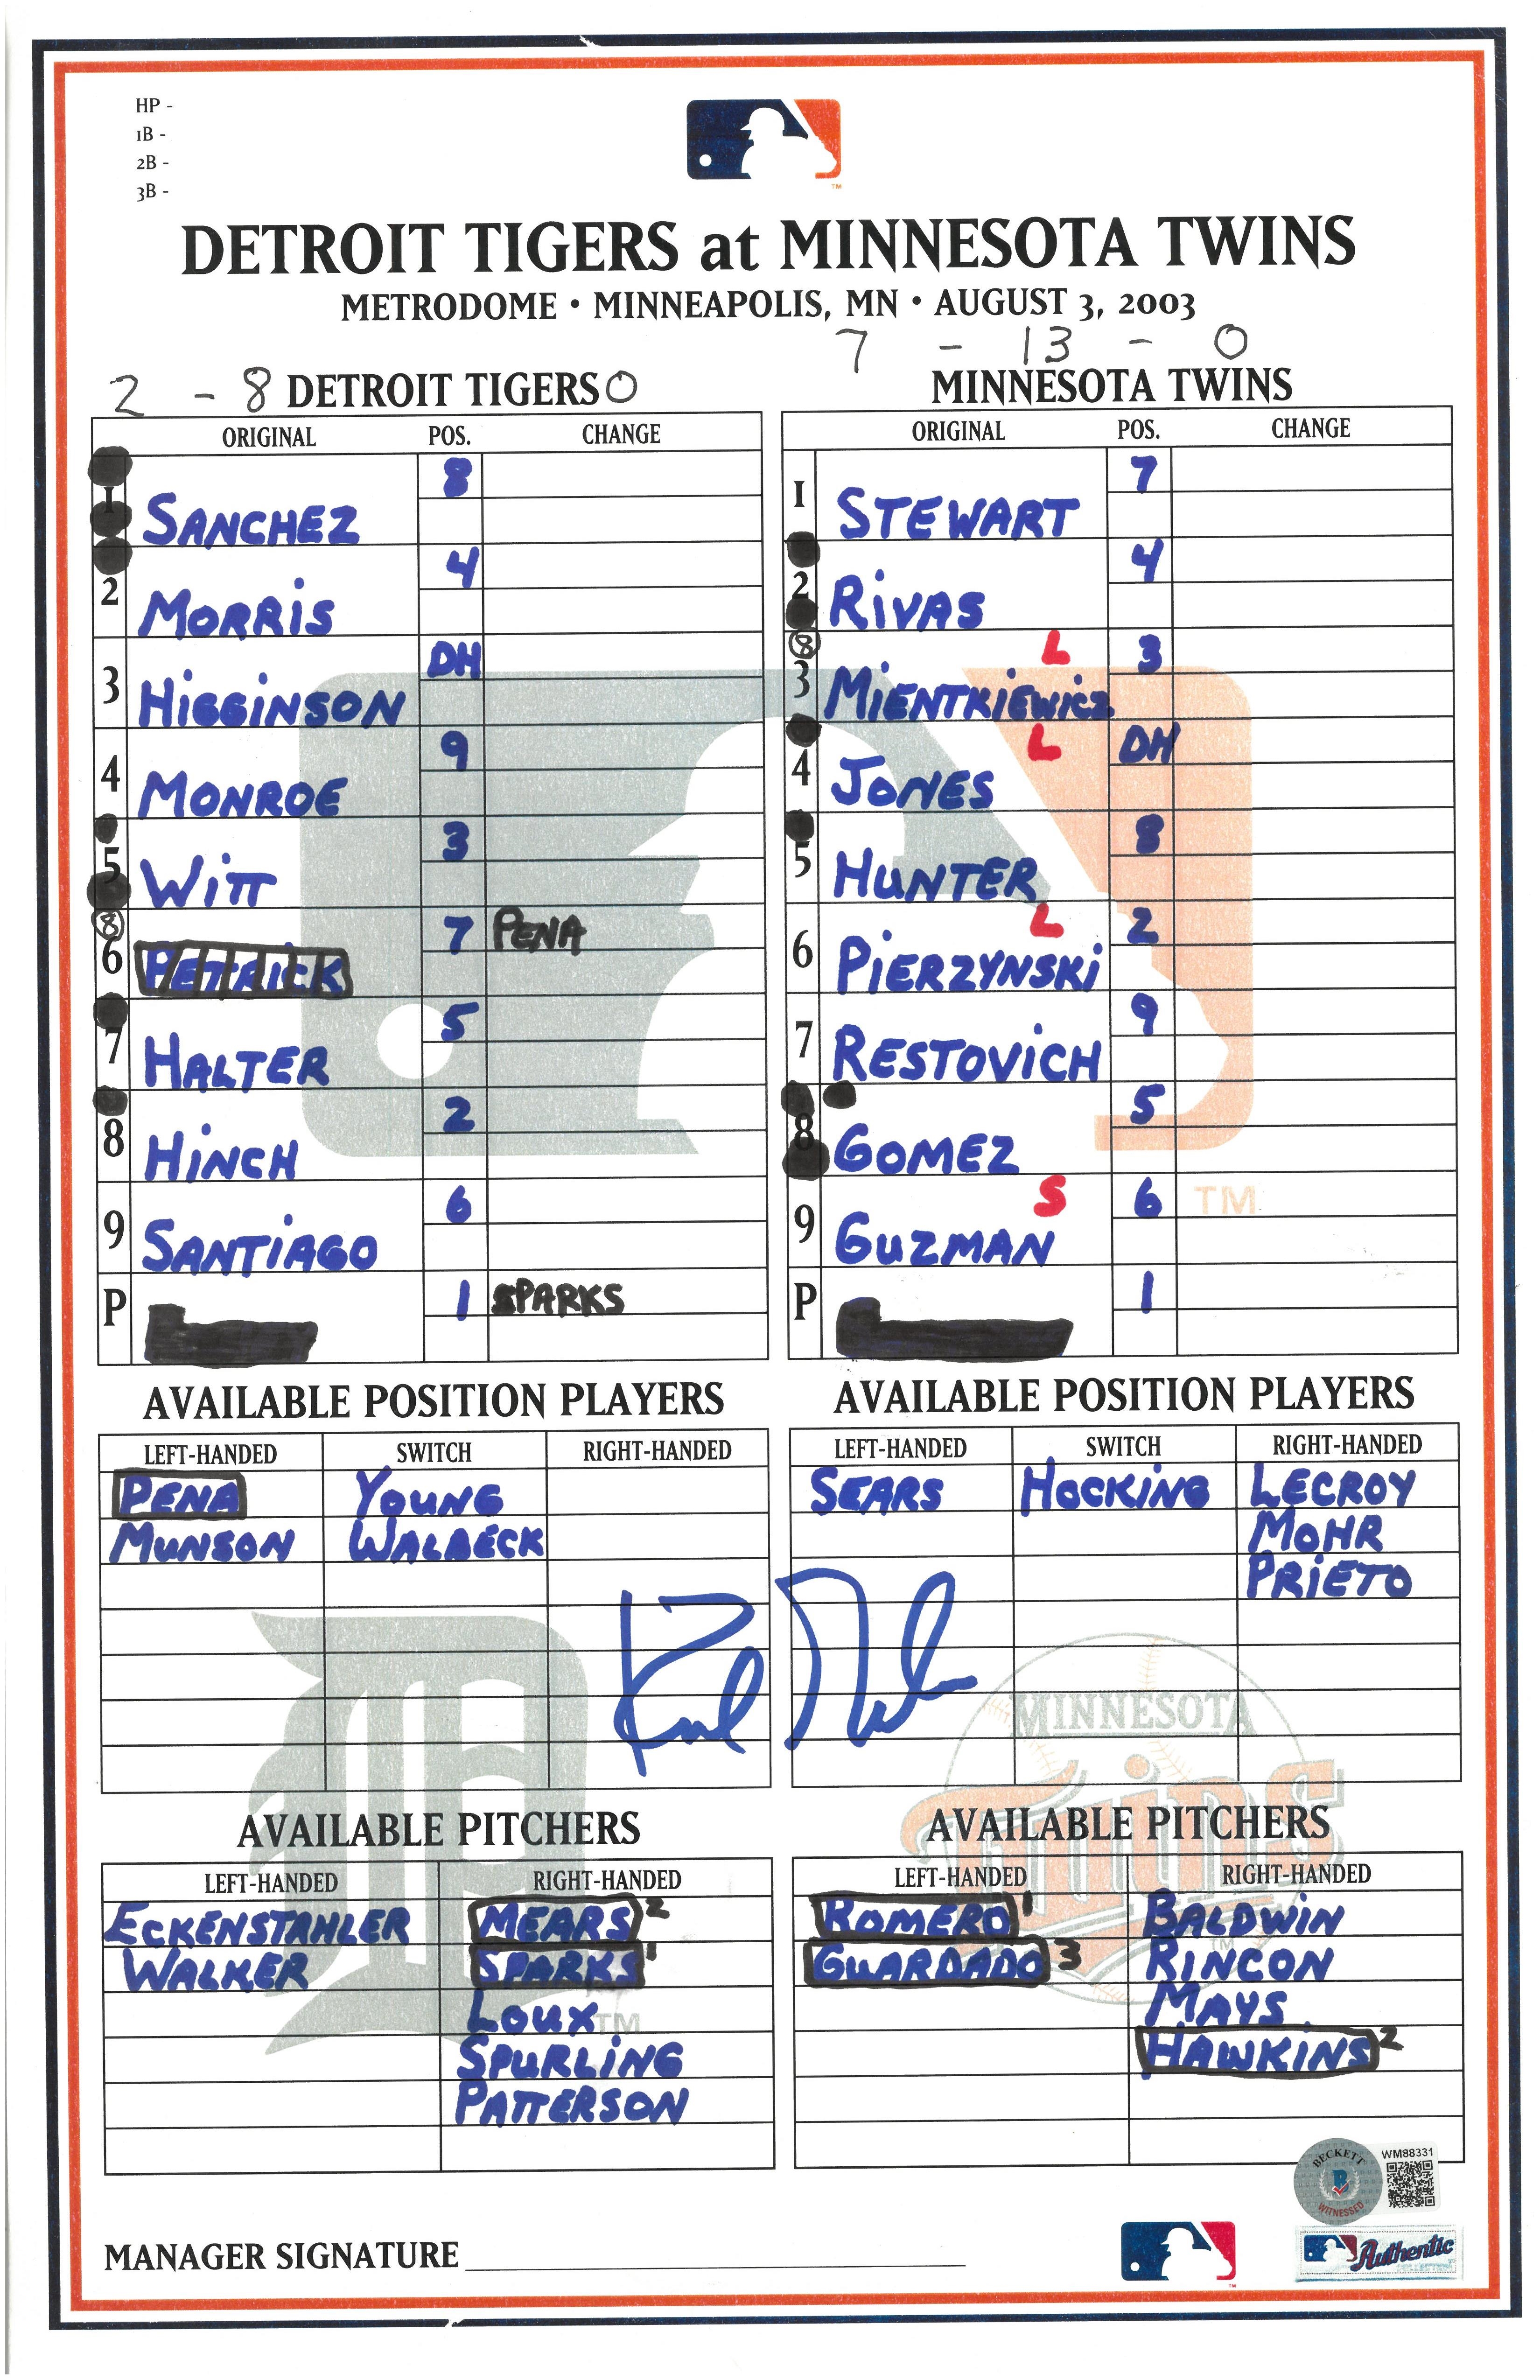 HP -
1B -
2B -
3B -
TM
DETROIT TIGERS at MINNESOTA TWINS
METRODOME • MINNEAPOLIS, MN • AUGUST 3, 2003
7 - 13 - 0
2 - 8 DETROIT TIGERS 0
MINNESOTA TWINS
ORIGINAL POS. CHANGE
1 SANCHEZ 8
2 MORRIS 4
3 HIGGINSON DH
4 MONROE 9
5 WITT 3
8 6 PETRICK 7 PENA
7 HALTER 5
8 HINCH 2
9 SANTIAGO 6
P 1 SPARKS
ORIGINAL POS. CHANGE
1 STEWART 7
2 RIVAS 4
8 3 MIENTKIEWICZ L 3
4 JONES L DH
5 HUNTER 8
6 PIERZYNSKI L 2
7 RESTOVICH 9
8 GOMEZ 5
9 GUZMAN S 6
TM
P 1
AVAILABLE POSITION PLAYERS
LEFT-HANDED SWITCH RIGHT-HANDED
PENA YOUNG
MUNSON WALBECK
AVAILABLE POSITION PLAYERS
LEFT-HANDED SWITCH RIGHT-HANDED
SEARS HOCKING LECROY
MOHR
PRIETO
MINNESOTA
Twins
TM
AVAILABLE PITCHERS
LEFT-HANDED RIGHT-HANDED
ECKENSTAHLER MEARS 2
WALKER SPARKS 1
LOUX
TM
SPURLING
PATTERSON
AVAILABLE PITCHERS
LEFT-HANDED RIGHT-HANDED
ROMERO 1 BALDWIN
GUARDADO 3 RINCON
MAYS
HAWKINS 2
BECKETT
B
WITNESSED
WM88331
MANAGER SIGNATURE
TM
Authentic